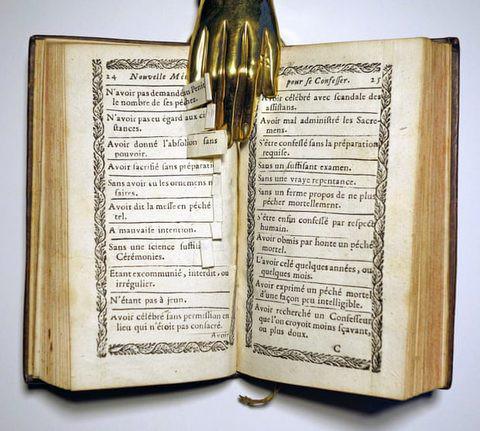 24 Nouvelle Mé
N'avoir pas demandé au Penit
le nombre de ses péchez.
N'avoir pas eu égard aux ci
stances.
Avoir donné l'absolution sans
pouvoir.
Avoir sacrifié sans préparati
Sans avoir les ornemens n
saires.
Avoir dit la messe en péché
tel.
A mauvaise intention.
Sans une science suffis
Cérémonies.
Etant excommunié, interdit, ou
irrégulier.
N'étant pas à jeun.
Avoir célébré sans permission en
lieu qui n'étoit pas consacré.
Avoir
pour se Confesser. 25
Avoir célébré avec scandale des
assistans.
Avoir mal administré les Sacre-
mens.
S'être confessé sans la préparation
requise.
Sans un suffisant examen.
Sans une vraye repentance.
Sans un ferme propos de ne plus
pécher mortellement.
S'être enfin confessé par respect
humain.
Avoir obmis par honte un péché
mortel.
L'avoir celé quelques années, ou
quelques mois.
Avoir exprimé un péché mortel
d'une façon peu intelligible.
Avoir recherché un Confesseur
qu'on croyoit moins sçavant,
ou plus doux.
C